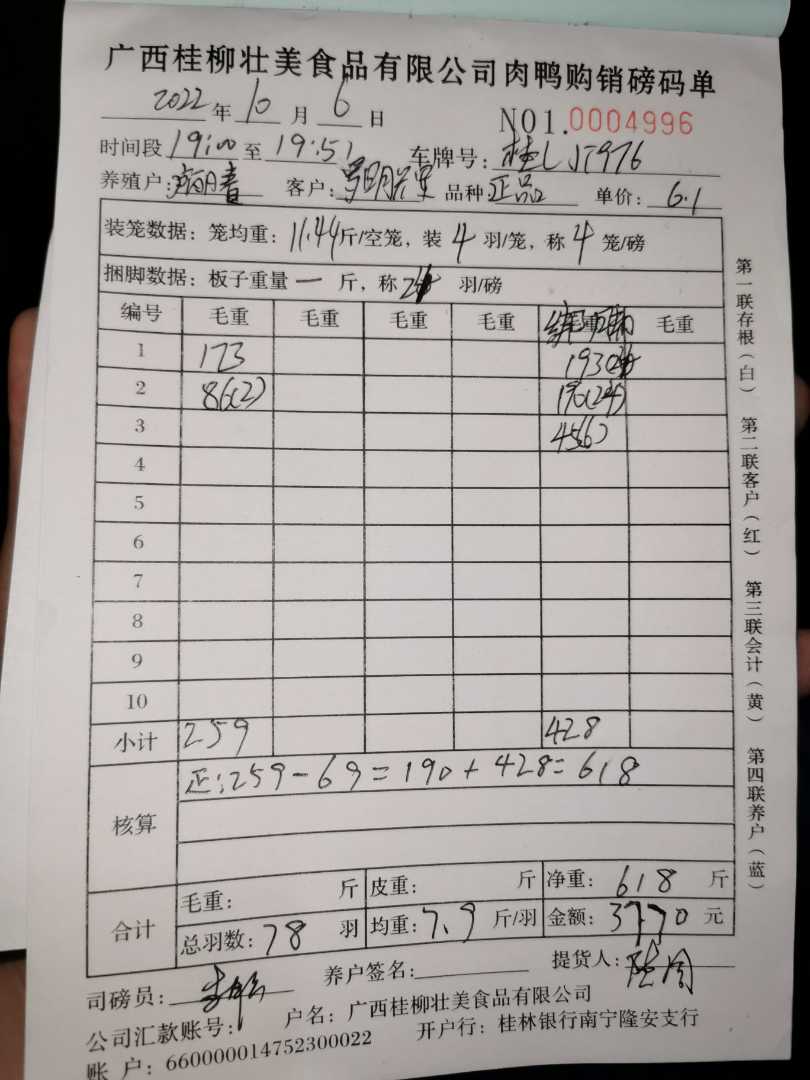 广西桂柳壮美食品有限公司肉鸭购销磅码单
2022年10月6日 NO1.0004996
时间段19:00至19:51 车牌号:桂LJT976
养殖户: 客户: 品种正品 单价:6.1
装笼数据:笼均重:11.44斤/空笼,装4羽/笼,称4笼/磅
捆脚数据:板子重量一斤,称24羽/磅
编号 毛重 毛重 毛重 毛重 毛重 毛重
1 173 193(24)
2 86(2) 190(24)
3 45(6)
4
5
6
7
8
9
10
小计 259 428
核算 正:259-69=190+428=618
合计 毛重: 斤 皮重: 斤 净重:618斤
总羽数:78羽 均重:7.9斤/羽 金额:3770元
司磅员: 养户签名: 提货人:
公司汇款账号: 户名:广西桂柳壮美食品有限公司
账 户:660000014752300022 开户行:桂林银行南宁隆安支行
第一联存根(白) 第二联客户(红) 第三联会计(黄) 第四联养户(蓝)